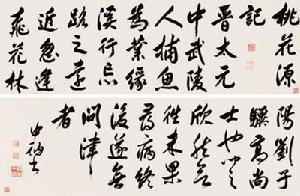 桃花源
記
晉太元
中武陵
人捕魚
為業緣
溪行忘
路之遠
近忽逢
桃花林
陽劉子
驥高尚
士也聞之
欣然
往未果
尋病終
後遂無
問津
者